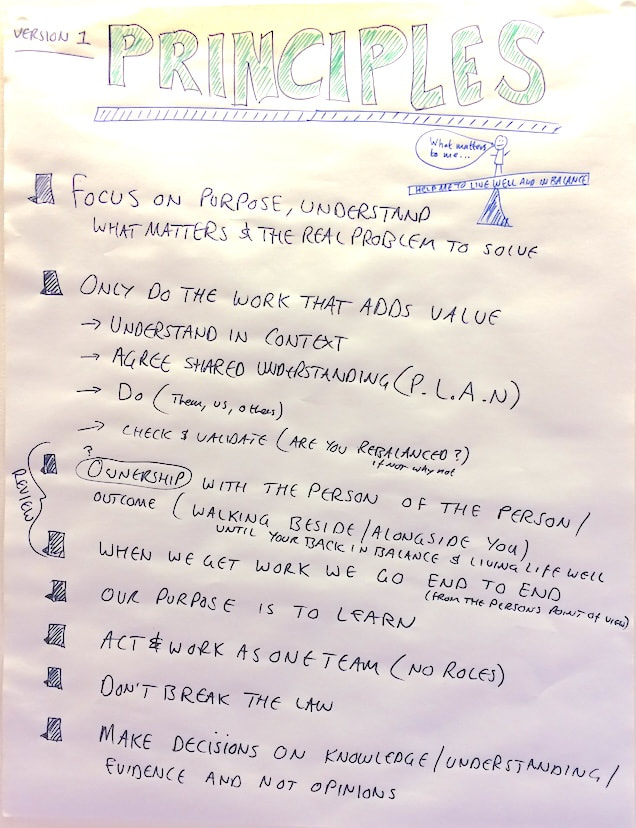 VERSION 1
PRINCIPLES
What matters
to me...
HELP ME TO LIVE WELL AND IN BALANCE
FOCUS ON PURPOSE, UNDERSTAND
WHAT MATTERS & THE REAL PROBLEM TO SOLVE
ONLY DO THE WORK THAT ADDS VALUE
→ UNDERSTAND IN CONTEXT
→ AGREE SHARED UNDERSTANDING (P.L.A.N)
→ DO (Them, us, others)
→ CHECK & VALIDATE (ARE YOU REBALANCED?)
if not why not
?
Review
OWNERSHIP WITH THE PERSON OF THE PERSON/
OUTCOME (WALKING BESIDE/ALONGSIDE YOU)
UNTIL YOUR BACK IN BALANCE & LIVING LIFE WELL
WHEN WE GET WORK WE GO END TO END
(FROM THE PERSONS POINT OF VIEW)
OUR PURPOSE IS TO LEARN
ACT & WORK AS ONE TEAM (NO ROLES)
DON'T BREAK THE LAW
MAKE DECISIONS ON KNOWLEDGE/UNDERSTANDING/
EVIDENCE AND NOT OPINIONS